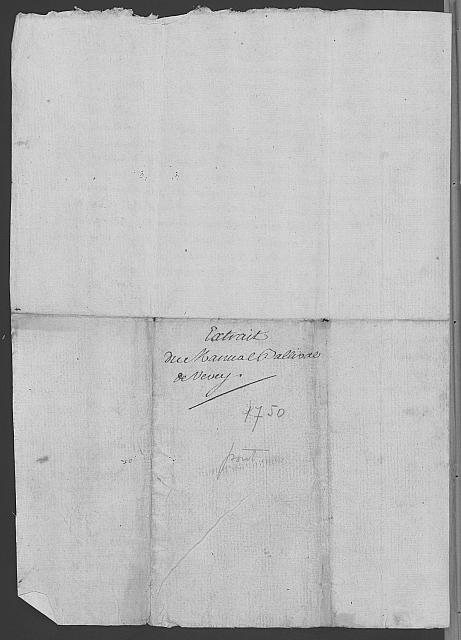 Extrait
du Manual Ballival
de Vevey.
1750
pont